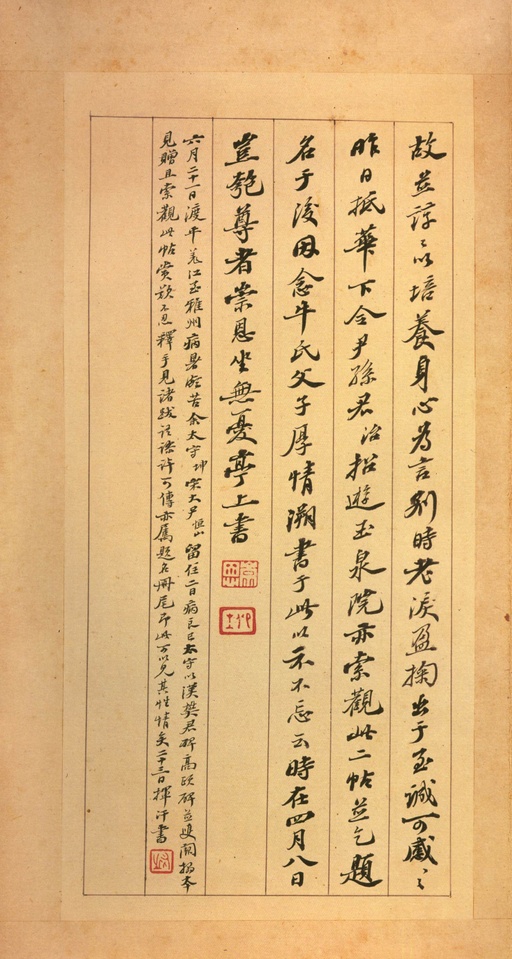 故并諄〻以培養身心為言别時老淚盈掬出于至誠可感〻
昨日抵華下令尹孫君治招遊玉泉院亦索觀此二帖並乞題
名于後因念牛氏父子厚情溯書于此以示不忘云時在四月八日
豈匏尊者崇恩坐無憂亭上書
六月二十一日渡平羌江至雅州病暑頗苦余太守坤宋大尹恒山留住二日病良已太守以漢樊君碑高頤碑並雙闕搨本
見贈且索觀此帖賞歎不忍釋手見諸跋語許可傳亦屬題名册尾即此可以見其性情矣二十三日揮汗書